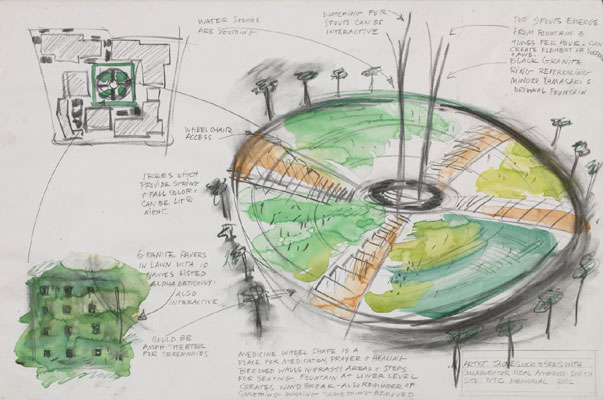 WATER SOUNDS
ARE SOOTHING
WATCHING FOR
SPOUTS CAN BE
INTERACTIVE
TWO SPOUTS EMERGE
FROM FOUNTAIN 3
TIMES PER HOUR. CAN
CREATE ELEMENT OF
+ AWE.
BLACK GRANITE
RING REFERENCING
MINORU YAMASAKI'S
ORIGINAL FOUNTAIN
WHEELCHAIR
ACCESS
TREES WHICH
PROVIDE SPRING
+ FALL COLOR +
CAN BE LIT @
NIGHT.
GRANITE PAVERS
IN LAWN WITH
NAMES LISTED
ALPHABETICALLY.
ALSO
INTERACTIVE
COULD BE
AMPHITHEATER
FOR CEREMONIES
MEDICINE WHEEL SHAPE IS A
PLACE FOR MEDITATION, PRAYER + HEALING
BERMED WALLS W/GRASSY AREAS + STEPS
FOR SEATING. FOUNTAIN AT LOWER LEVEL
CREATES WIND BREAK - ALSO REMINDER OF
SOMETHING MISSING SOMETHING REMOVED
ARTIST JAUNE QUICK-TO-SEE SMITH
COLLABORATOR NEAL AMBROSE SMITH
SITE: WTC MEMORIAL 2002